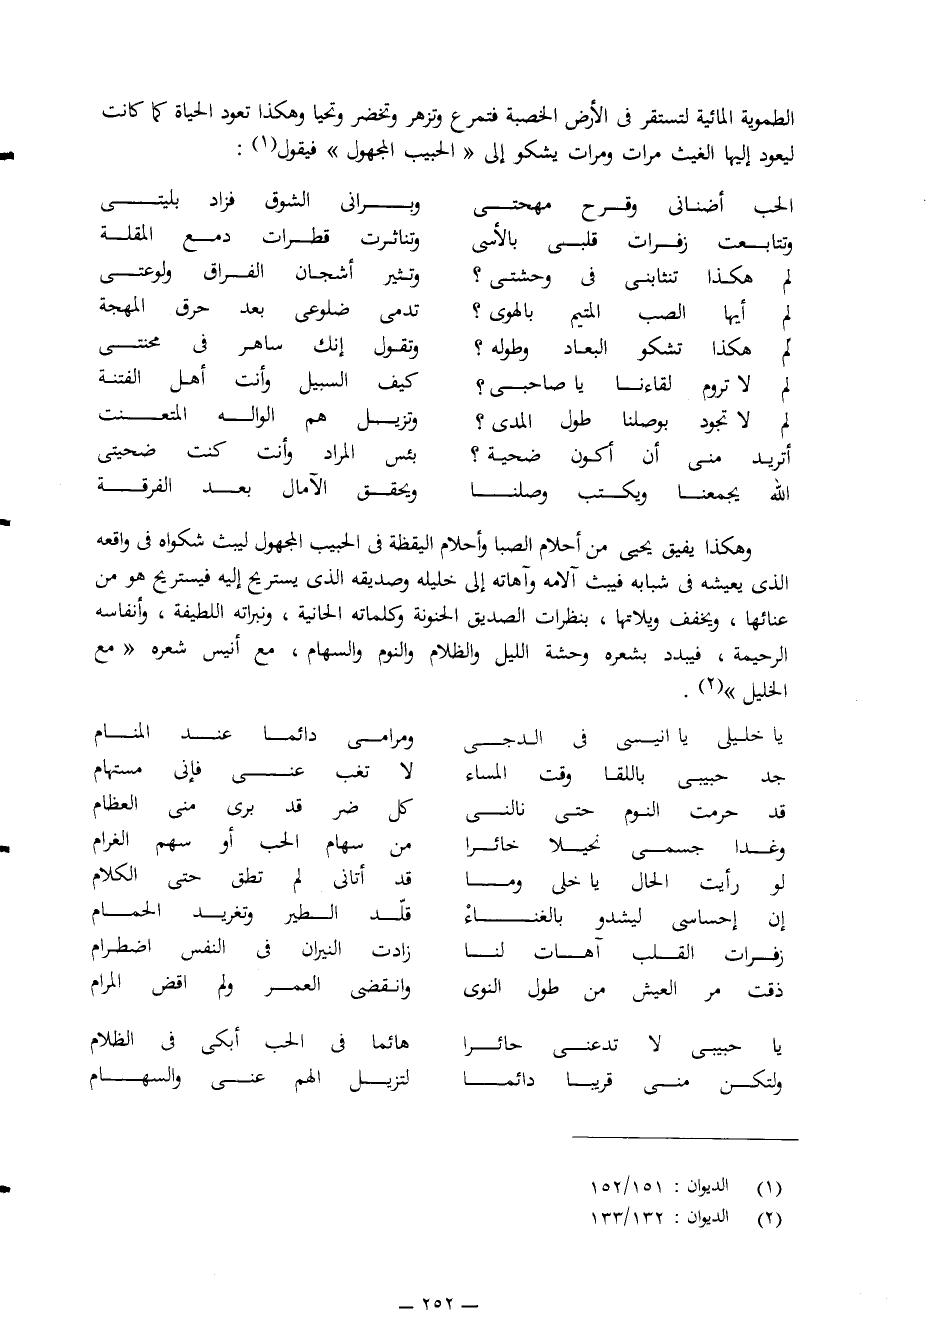 الطموية المائية لتستقر فى الأرض الخصبة فتمرع وتزهر وتخضر وتحيا وهكذا تعود الحياة كما كانت
ليعود إليها الغيث مرات ومرات يشكو إلى « الحبيب المجهول » فيقول(١) :
الحب أضنانى وقرح مهجتى وبرانى الشوق فزاد بليتى
وتتابعت زفرات قلبى بالأسى وتناثرت قطرات دمع المقلة
لم هكذا تنتابنى فى وحشتى ؟ وتثير أشجان الفراق ولوعتى
لم أيها الصب المتيم بالهوى ؟ تدمى ضلوعى بعد حرق المهجة
لم هكذا تشكو البعاد وطوله ؟ وتقول إنك ساهر فى محنتى
لم لا تروم لقاءنا يا صاحبى ؟ كيف السبيل وأنت أهل الفتنة
لم لا تجود بوصلنا طول المدى ؟ وتزيل هم الواله المتعنت
أتريد منى أن أكون ضحية ؟ بئس المراد وأنت كنت ضحيتى
الله يجمعنا ويكتب وصلنا ويحقق الآمال بعد الفرقة
وهكذا يفيق يحيى من أحلام الصبا وأحلام اليقظة فى الحبيب المجهول ليبث شكواه فى واقعه
الذى يعيشه فى شبابه فيبث آلامه وآهاته إلى خليله وصديقه الذى يستريح إليه فيستريح هو من
عنائها ، ويخفف ويلاتها ، بنظرات الصديق الحنونة وكلماته الحانية ، ونبراته اللطيفة ، وأنفاسه
الرحيمة ، فيبدد بشعره وحشة الليل والظلام والنوم والسهام ، مع أنيس شعره « مع
الخليل »(٢) .
يا خليلى يا انيسى فى الدجى ومرامى دائما عند المنام
جد حبيبى باللقا وقت المساء لا تغب عنى فإنى مستهام
قد حرمت النوم حتى نالنى كل ضر قد برى منى العظام
وغدا جسمى نحيلا خائرا من سهام الحب أو سهم الغرام
لو رأيت الحال يا خلى وما قد أتانى لم تطق حتى الكلام
إن إحساسى ليشدو بالغناءْ قلّد الطير وتغريد الحمام
زفرات القلب آهات لنا زادت النيران فى النفس اضطرام
ذقت مر العيش من طول النوى وانقضى العمر ولم اقض المرام
يا حبيبى لا تدعنى حائرا هائما فى الحب أبكى فى الظلام
ولتكن منى قريبا دائما لتزيل الهم عنى والسهام
(١) الديوان : ١٥٢/١٥١
(٢) الديوان : ١٣٣/١٣٢
— ٢٥٢ —